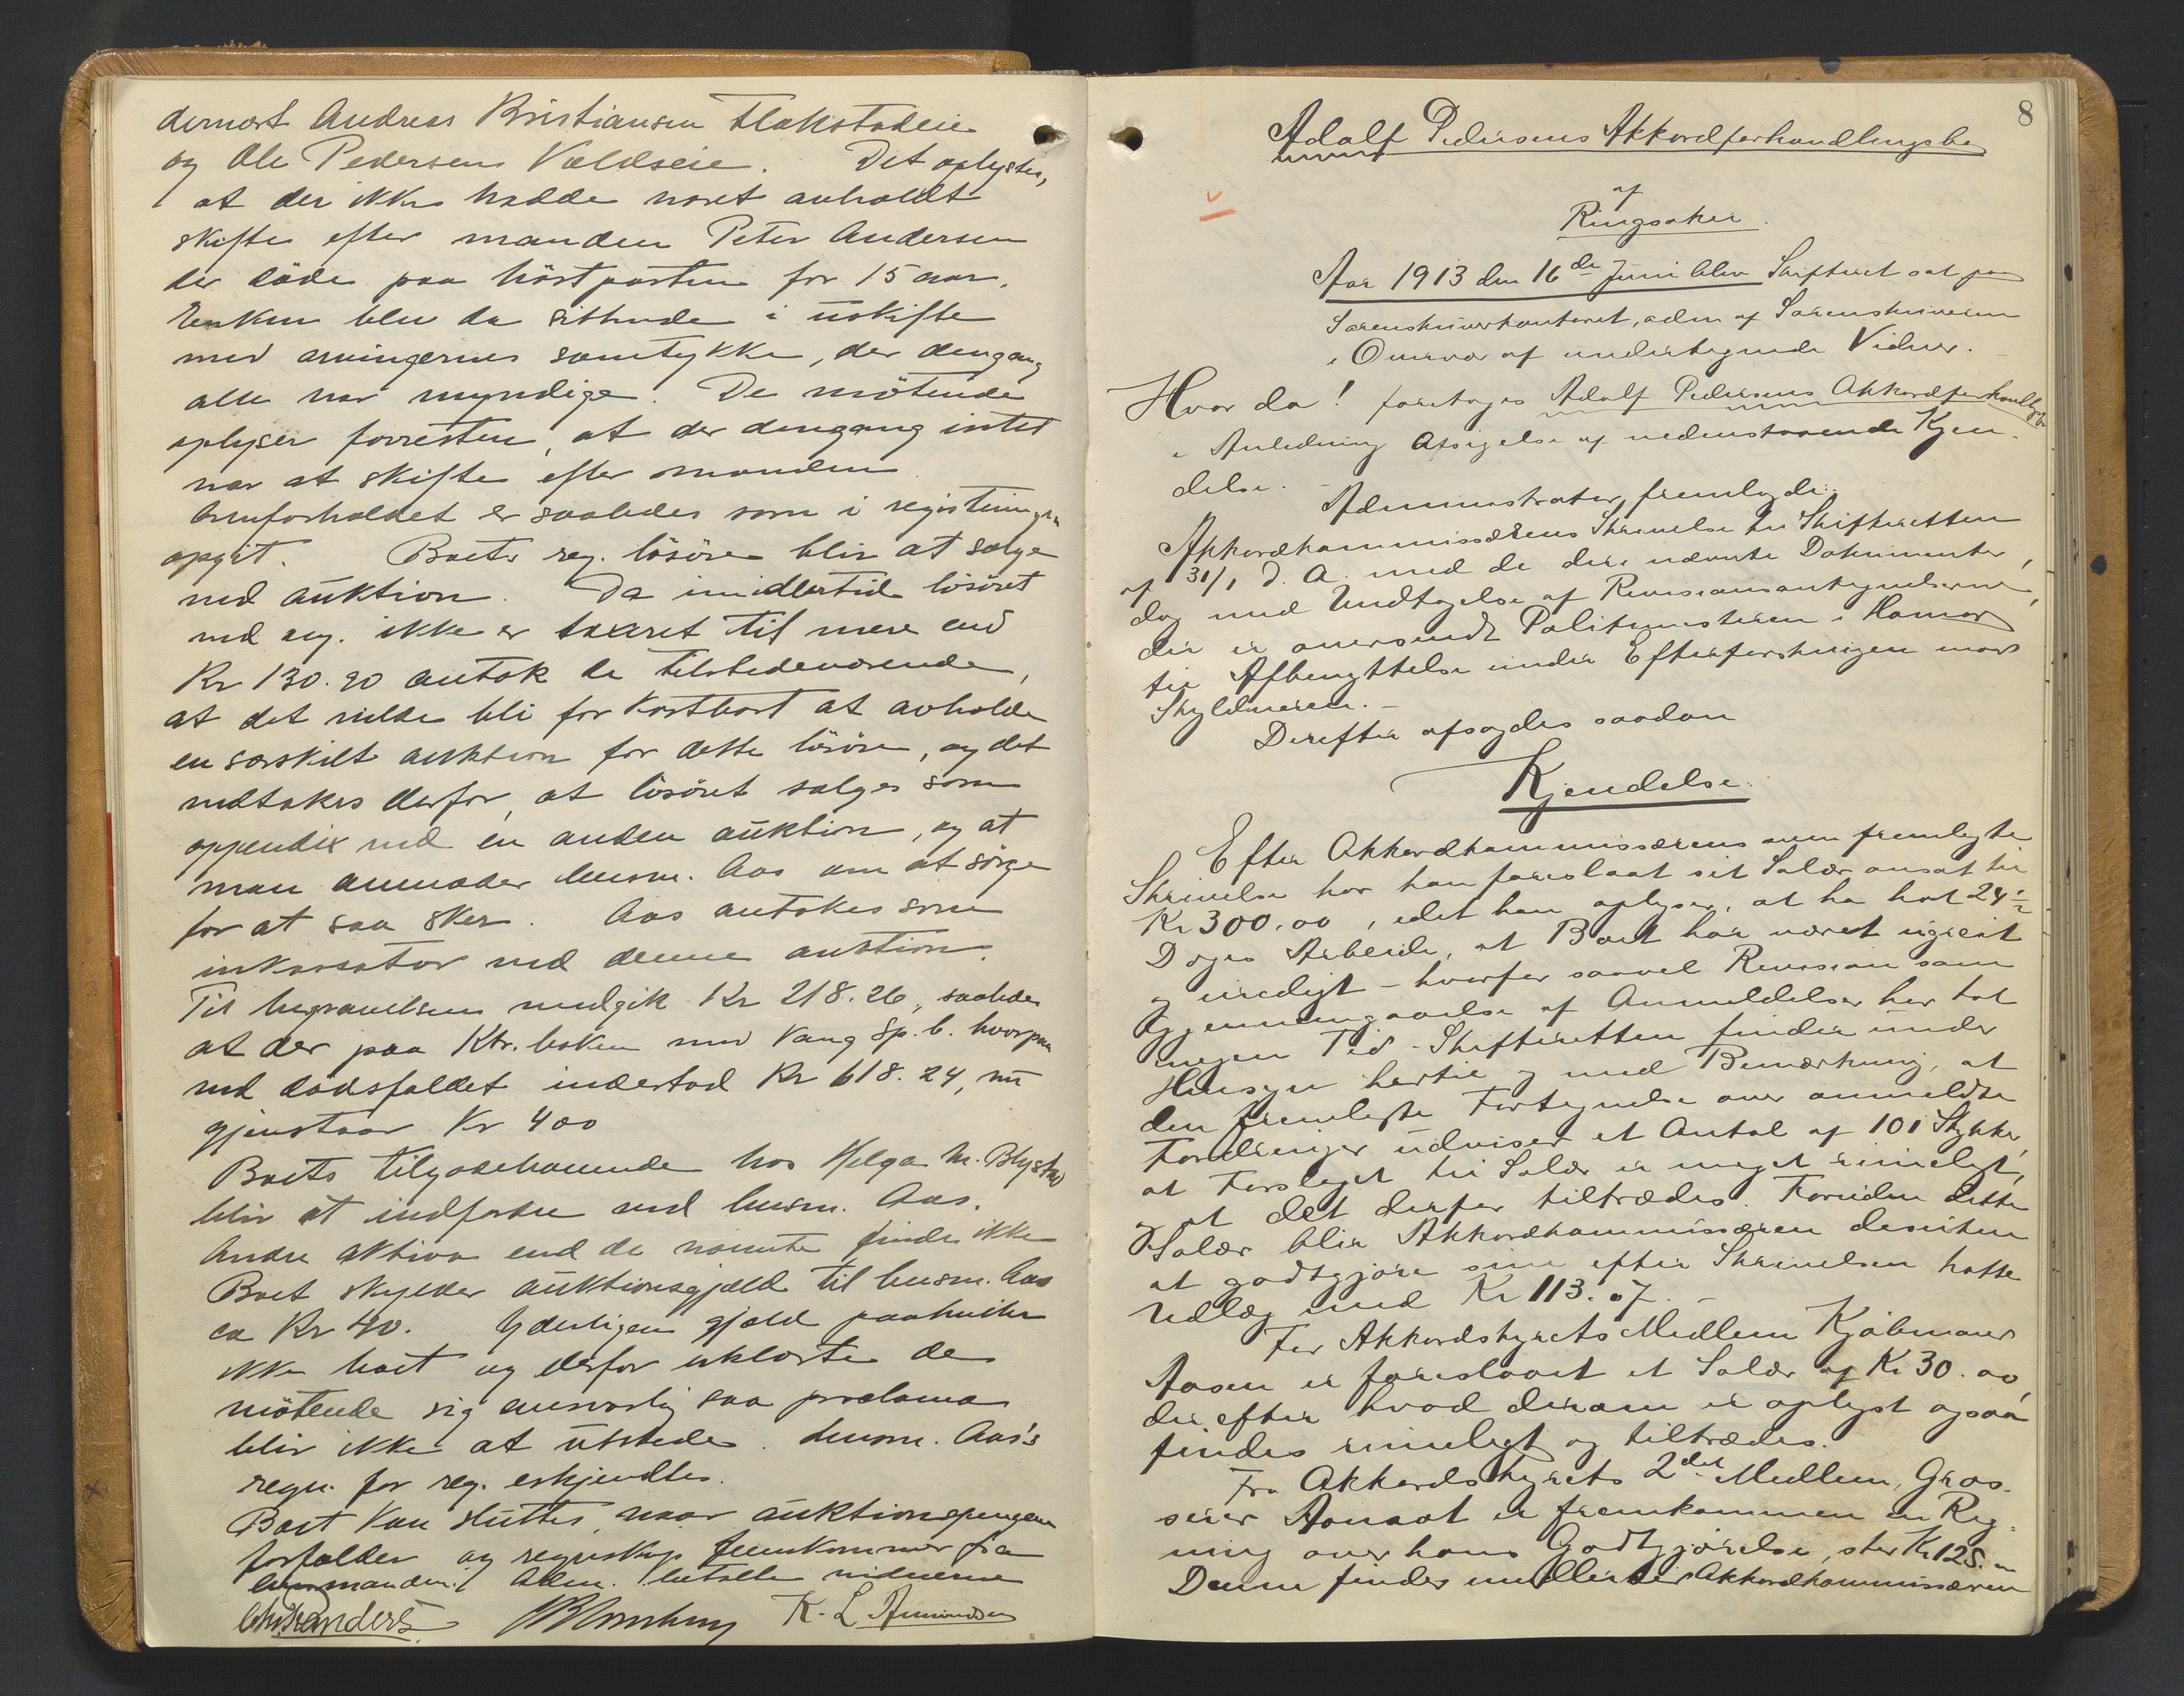 dernæst Andreas Kristiansen Flakstadeie
og Ole Pedersen Voldseie. Det oplystes,
at der ikke hadde været avholdt
skifte efter manden Peter Andersen
der döde paa höstparten for 15 aar.
Enken blev da sittende i uskifte
med arvingernes samtykke, der dengang
alle var myndige. De mötende
oplyser forresten, at der dengang intet
var at skifte efter manden
Arveforholdet er saaledes som i registeringen
opgit. Boets reg. lösöre blir at sælge
ved auktion. Da imidlertid lösöret
ved reg. ikke er taxeret til mere end
Kr 130.90 antok de tilstedeværende,
at det vilde bli for kostbart at avholde
en særskilt auktion for dette lösöre, og det
vedtokes derfor, at lösöret sælges som
appendix ved en anden auktion, og at
man anmoder lensm. Aas om at sörge
for at saa sker. Aas antokes som
inkassator ved denne auktion.
Til begravelsen medgik Kr 218.26, saaledes
at der paa Ktr. boken med Vang Sp.b. hvorpaa
ved dödsfaldet indestod Kr 618.24, nu
gjenstaar Kr 400
Boets tilgodehavende hos Helga M. Blystad
blir at indfordre ved lensm. Aas.
Andre aktiva end de nævnte findes ikke
Boet skylder auktionsgjæld til lensm. Aas
ca Kr 40. Yderligere gjæld paahviler
ikke boet og derfor erklærte de
mötende sig ansvarlig saa proclama
blir ikke at utstede. Lensm. Aas's
regn. for reg. erkjendtes.
Boet kan sluttes, naar auktionspengene
forfalder og regnskap fremkommer fra
lensmanden. Adm. betalte vidnerne
K. L. Amundsen
8
Adolf Pedersens Akkordforhandlingsbo
af
Ringsaker.
Aar 1913 den 16de Juni blev Skifteret sat paa
Sorenskriverkontoret, adm. af Sorenskriveren
i Overvær af undertegnede Vidner.
Hvor da! foretoges Adolf Pedersens Akkordforhandlgsbo
i Anledning Afsigelse af nedenstaaende Kjen-
delse. -
Administrator fremlagde:
Akkordkommissærens Skrivelse til Skifteretten
af 31/1 d. A. med de deri nævnte Dokumenter,
dog med Undtagelse af Revisionsantegnelserne,
der er oversendt Politimesteren i Hamar
til Afbenyttelse under Efterforskningen mod
Skyldneren. -
Derefter afsagdes saadan
Kjendelse:
Efter Akkordkommissærens nu fremlagte
Skrivelse har han foreslaat sit Salær ansat til
Kr 300.00, idet han oplyser, at ha hat 24½
Dages Arbeide, at Boet har været ugreit
og uredigt - hvorfor saavel Revision som
Gjennemgaaelse af Anmeldelser har tat
megen Tid - Skifteretten finder under
Hensyn hertil og med Bemærkning, at
den fremlagte Fortegnelse over anmeldte
Fordringer udviser et Antal af 101 Stykker,
at Forslaget til Salær er meget rimeligt,
og at det derfor tiltrædes. Foruden dette
Salær blir Akkordkommissæren desuten
at godtgjøre sine efter Skrivelsen hatte
Udlæg med Kr 113.07. -
For Akkordstyrets Medlem Kjøbmand
Aasen er foreslaaet et Salær af Kr 30.00,
der efter hvad derom er oplyst ogsaa
findes rimeligt og tiltrædes.
Fra Akkordstyrets 2det Medlem, Gros-
serer Aamot er fremkommen en Reg-
ning over hans Godtgjørelse, stor Kr 125.00
Denne findes imidlertid Akkordkommissæren